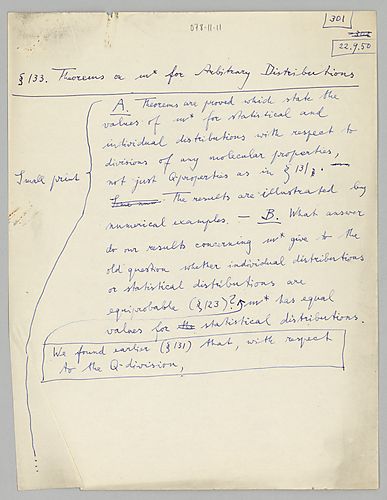 078-11-11
301
22.9.50
§133. Theorems on m* for Arbitrary Distributions
Small print
A. Theorems are proved which state the
values of m* for statistical and
individual distributions with respect to
divisions of any molecular properties,
not just Q-properties as in §131.
The results are illustrated by
numerical examples. — B. What answer
do our results concerning m* give to the
old question whether individual distributions
or statistical distributions are
equiprobable (§123)? m* has equal
values for the statistical distributions.
We found earlier (§131) that, with respect
to the Q-division,